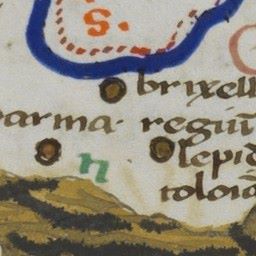 s.
brixell
arma. regiū
n lepid
toloia